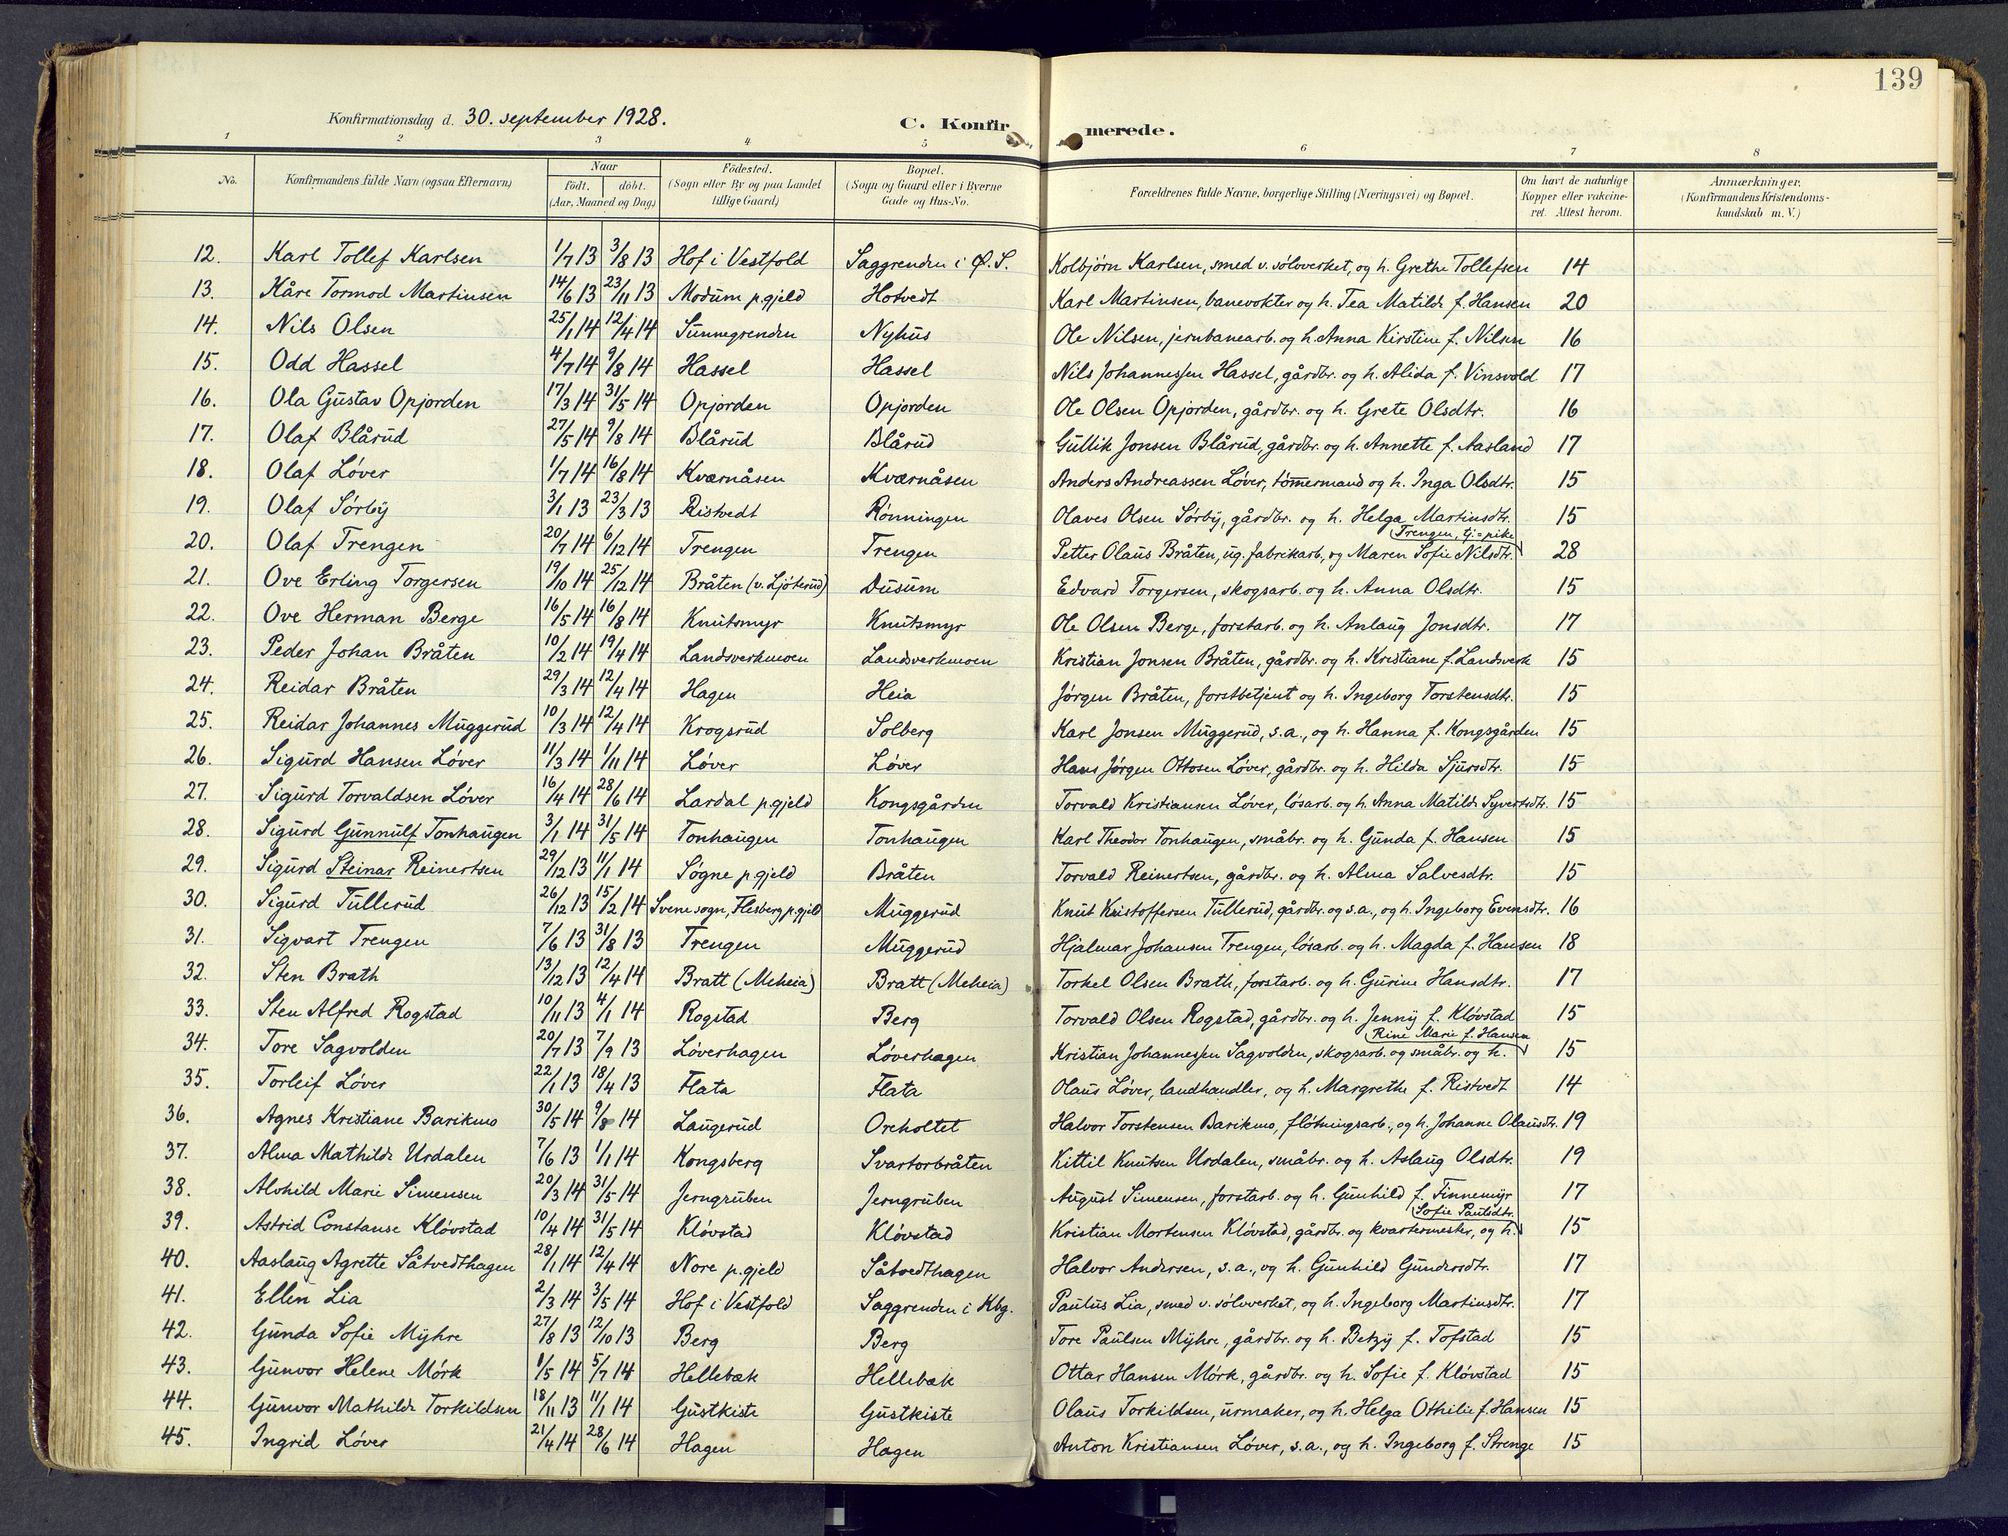 139
Konfirmationsdag d. 30. september 1928.
C. Konfirmerede.
1 2 3 4 5 6 7 8
No. | Konfirmandens fulde Navn (ogsaa Efternavn) | Naar födt. döbt. (Aar, Maaned og Dag) | Födested. (Sogn eller By og paa Landet tillige Gaard) | Bopæl. (Sogn og Gaard eller i Byerne Gade og Hus-No. | Forældrenes fulde Navne, borgerlige Stilling (Næringsvei) og Bopæl. | Om havt de naturlige Kopper eller vakcineret. Attest herom. | Anmærkninger. (Konfirmandens Kristendomskundskab m. V.)
12. Karl Tollef Karlsen 1/7 13 3/8 13 Hof i Vestfold Saggrenden i Ø.S. Kolbjørn Karlsen, smed v. sølverket, og h. Grethe Tollefsen 14
13. Kåre Tormod Martinsen 14/6 13 23/11 13 Modum p.gjeld Hotvedt Karl Martinsen, banevokter og h. Tea Matilde f. Hansen 20
14. Nils Olsen 25/1 14 12/4 14 Sunnegrenden Nyhus Ole Nilsen, jernbanearb. og h. Anna Kirstine f. Nilsen 16
15. Odd Hassel 4/7 14 9/8 14 Hassel Hassel Nils Johannessen Hassel, gårdbr. og h. Alida f. Vinsvold 17
16. Ola Gustav Opjorden 17/3 14 31/5 14 Opjorden Opjorden Ole Olsen Opjorden, gårdbr. og h. Grete Olsdtr. 16
17. Olaf Blårud 27/5 14 9/8 14 Blårud Blårud Gullik Jonsen Blårud, gårdbr. og h. Annette f. Aasland 17
18. Olaf Løver 1/7 14 16/8 14 Kværnåsen Kværnåsen Anders Andreassen Løver, tømmermand og h. Inga Olsdtr. 15
19. Olaf Sørby 3/1 13 23/3 13 Ristvedt Rønningen Olaves Olsen Sørby, gårdbr. og h. Helga Martinsdtr. 15
20. Olaf Trengen 20/7 14 6/12 14 Trengen Trengen Petter Olaus Bråten, ug. fabrikarb, og Maren Sofie Nilsdtr. Trengen, tj.=pike 28
21. Ove Erling Torgersen 19/10 14 25/12 14 Bråten (v. Ljøterud) Dusum Edvard Torgersen, skogsarb. og h. Anna Olsdtr. 15
22. Ove Herman Berge 16/5 14 16/8 14 Knutsmyr Knutsmyr Ole Olsen Berge, forstarb. og h. Anlaug Jonsdtr. 17
23. Peder Johan Bråten 10/2 14 19/4 14 Landsverkmoen Landsverkmoen Kristian Jonsen Bråten, gårdbr. og h. Kristiane f. Landsverk 15
24. Reidar Bråten 29/3 14 12/4 14 Hagen Heia Jørgen Bråten, forstbetjent og h. Ingeborg Torstensdtr. 15
25. Reidar Johannes Muggerud 10/3 14 12/4 14 Krogsrud Solberg Karl Jonsen Muggerud, s.a., og h. Hanna f. Kongsgården 15
26. Sigurd Hansen Løver 11/3 14 1/11 14 Løver Løver Hans Jørgen Ottosen Løver, gårdbr. og h. Hilda Sjursdtr. 15
27. Sigurd Torvaldsen Løver 16/4 14 28/6 14 Lardal p.gjeld Kongsgården Torvald Kristiansen Løver, løsarb. og h. Anna Matilde Syvertsdtr. 15
28. Sigurd Gunnulf Tonhaugen 3/1 14 31/5 14 Tonhaugen Tonhaugen Karl Theodor Tonhaugen, småbr. og h. Gunda f. Hansen 15
29. Sigurd Steinar Reinertsen 29/12 13 11/1 14 Søgne p.gjeld Bråten Torvald Reinertsen, gårdbr. og h. Alma Salvesdtr. 15
30. Sigurd Tullerud 26/12 13 15/2 14 Svene sogn, Flesberg p.gjeld Muggerud Knut Kristoffersen Tullerud, gårdbr. og s.a., og h. Ingeborg Evensdtr. 16
31. Sigvart Trengen 7/6 13 31/8 13 Trengen Muggerud Hjalmar Johansen Trengen, løsarb. og h. Magda f. Hansen 18
32. Sten Brath 13/12 13 12/4 14 Bratt (Meheia) Bratt (Meheia) Torkel Olsen Brath, forstarb. og h. Gurine Hansdtr. 17
33. Sten Alfred Rogstad 10/11 13 4/1 14 Rogstad Berg Torvald Olsen Rogstad, gårdbr. og h. Jenny f. Kløvstad 15
34. Tore Sagvolden 20/7 13 7/9 13 Løverhagen Løverhagen Kristian Johannessen Sagvolden, skogsarb. og småbr. og h. Rine Marie f. Hansen 15
35. Torleif Løver 22/1 13 18/4 13 Flata Flata Olaus Løver, landhandler, og h. Margrethe f. Ristvedt 14
36. Agnes Kristiane Barikmo 30/5 14 9/8 14 Laugerud Oreholtet Halvor Torstensen Barikmo, fløtningsarb., og h. Johanne Olausdtr. 19
37. Alma Mathilde Urdalen 7/6 13 1/1 14 Kongsberg Svartorbråten Kittil Knutsen Urdalen, småbr. og h. Aslaug Olsdtr. 19
38. Alvhild Marie Simensen 20/3 14 31/5 14 Jerngruben Jerngruben August Simensen, forstarb. og h. Gunhild f. Finnemyr 17
39. Astrid Constanse Kløvstad 10/4 14 31/5 14 Kløvstad Kløvstad Kristian Mortensen Kløvstad, gårdbr. og kvartermester, og h. Sofie Paulsdtr. 15
40. Aaslaug Agrette Såtvedthagen 28/1 14 12/4 14 Nore p.gjeld Såtvedthagen Halvor Andersen, s.a., og h. Gunhild Gundersdtr. 17
41. Ellen Lia 2/3 14 3/5 14 Hof i Vestfold Saggrenden i Kbg. Paulus Lia, smed v. sølverket, og h. Ingeborg Martinsdtr. 17
42. Gunda Sofie Myhre 27/8 13 12/10 13 Berg Berg Tore Paulsen Myhre, gårdbr. og h. Betzy f. Tofstad 15
43. Gunvor Helene Mørk 1/5 14 5/7 14 Hellebæk Hellebæk Ottar Hansen Mørk, gårdbr. og h. Sofie f. Kløvstad 15
44. Gunvor Mathilde Torkildsen 18/11 13 11/1 14 Gustkiste Gustkiste Olaus Torkildsen, urmaker, og h. Helga Othilie f. Hansen 15
45. Ingrid Løver 21/4 14 28/6 14 Hagen Hagen Anton Kristiansen Løver, s.a., og h. Ingeborg f. Strenge 15